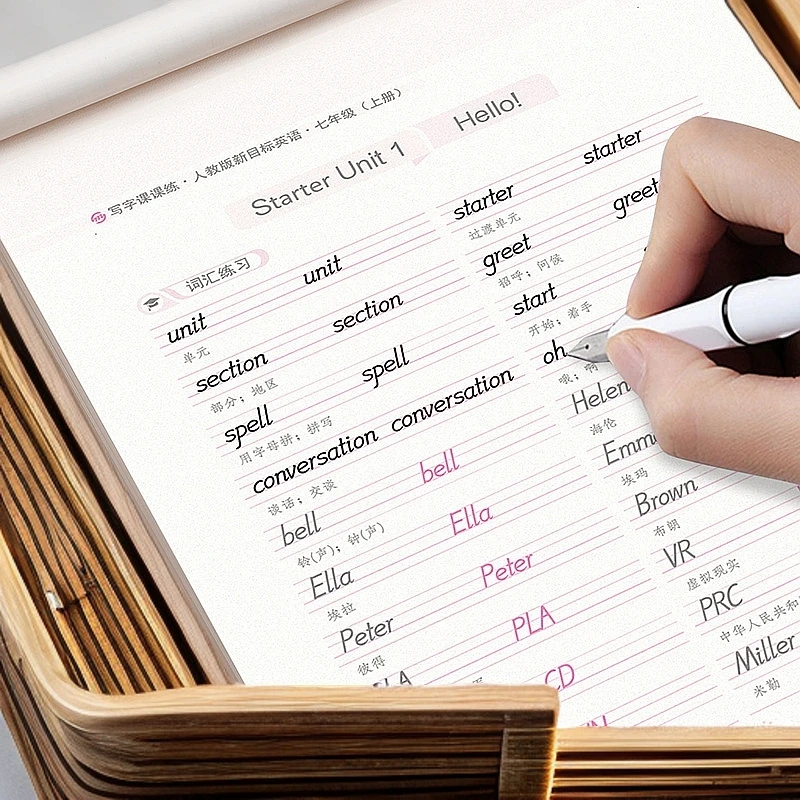 写字课课练·人教版新目标英语·七年级（上册）
Starter Unit 1 Hello!
词汇练习
unit unit
单元
section section
部分；地区
spell spell
用字母拼；拼写
conversation conversation
谈话；交谈
bell bell
铃(声)；钟(声)
Ella Ella
埃拉
Peter Peter
彼得
PLA
CD
starter starter
过渡单元
greet greet
招呼；问候
start
开始；着手
oh
哦；啊
Helen
海伦
Emma
埃玛
Brown
布朗
VR
虚拟现实
PRC
中华人民共和
Miller
米勒